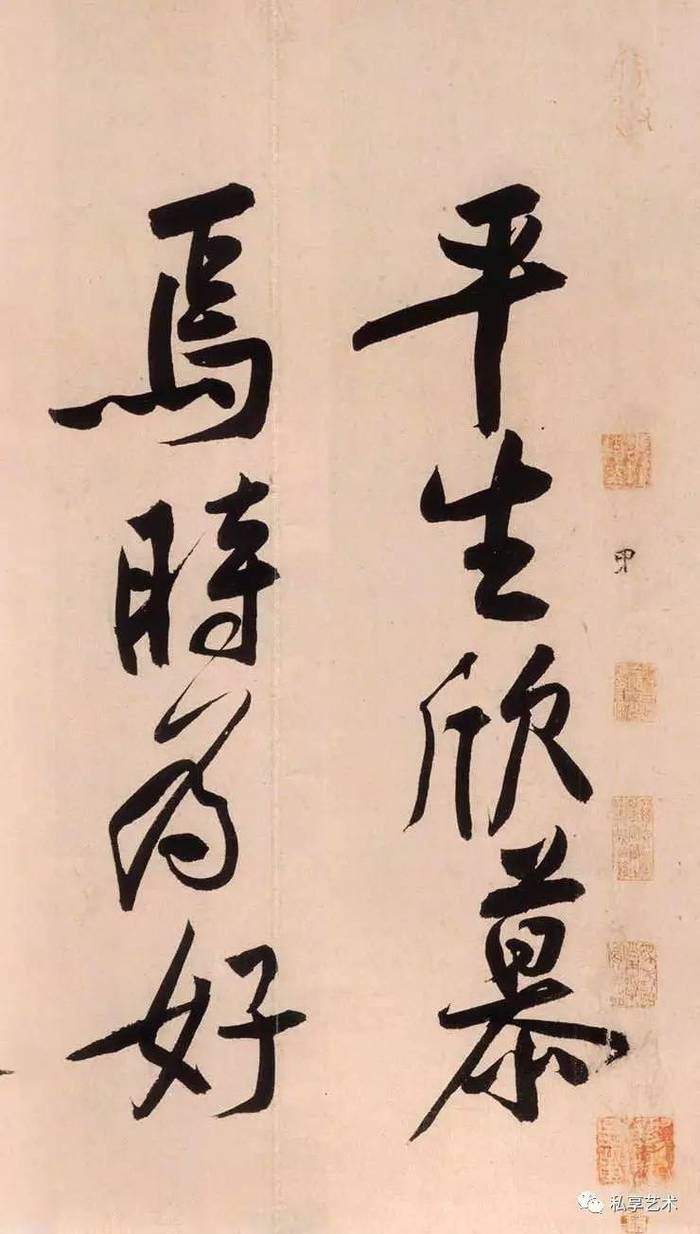 平生欣慕
焉時為好
甲
私享艺术